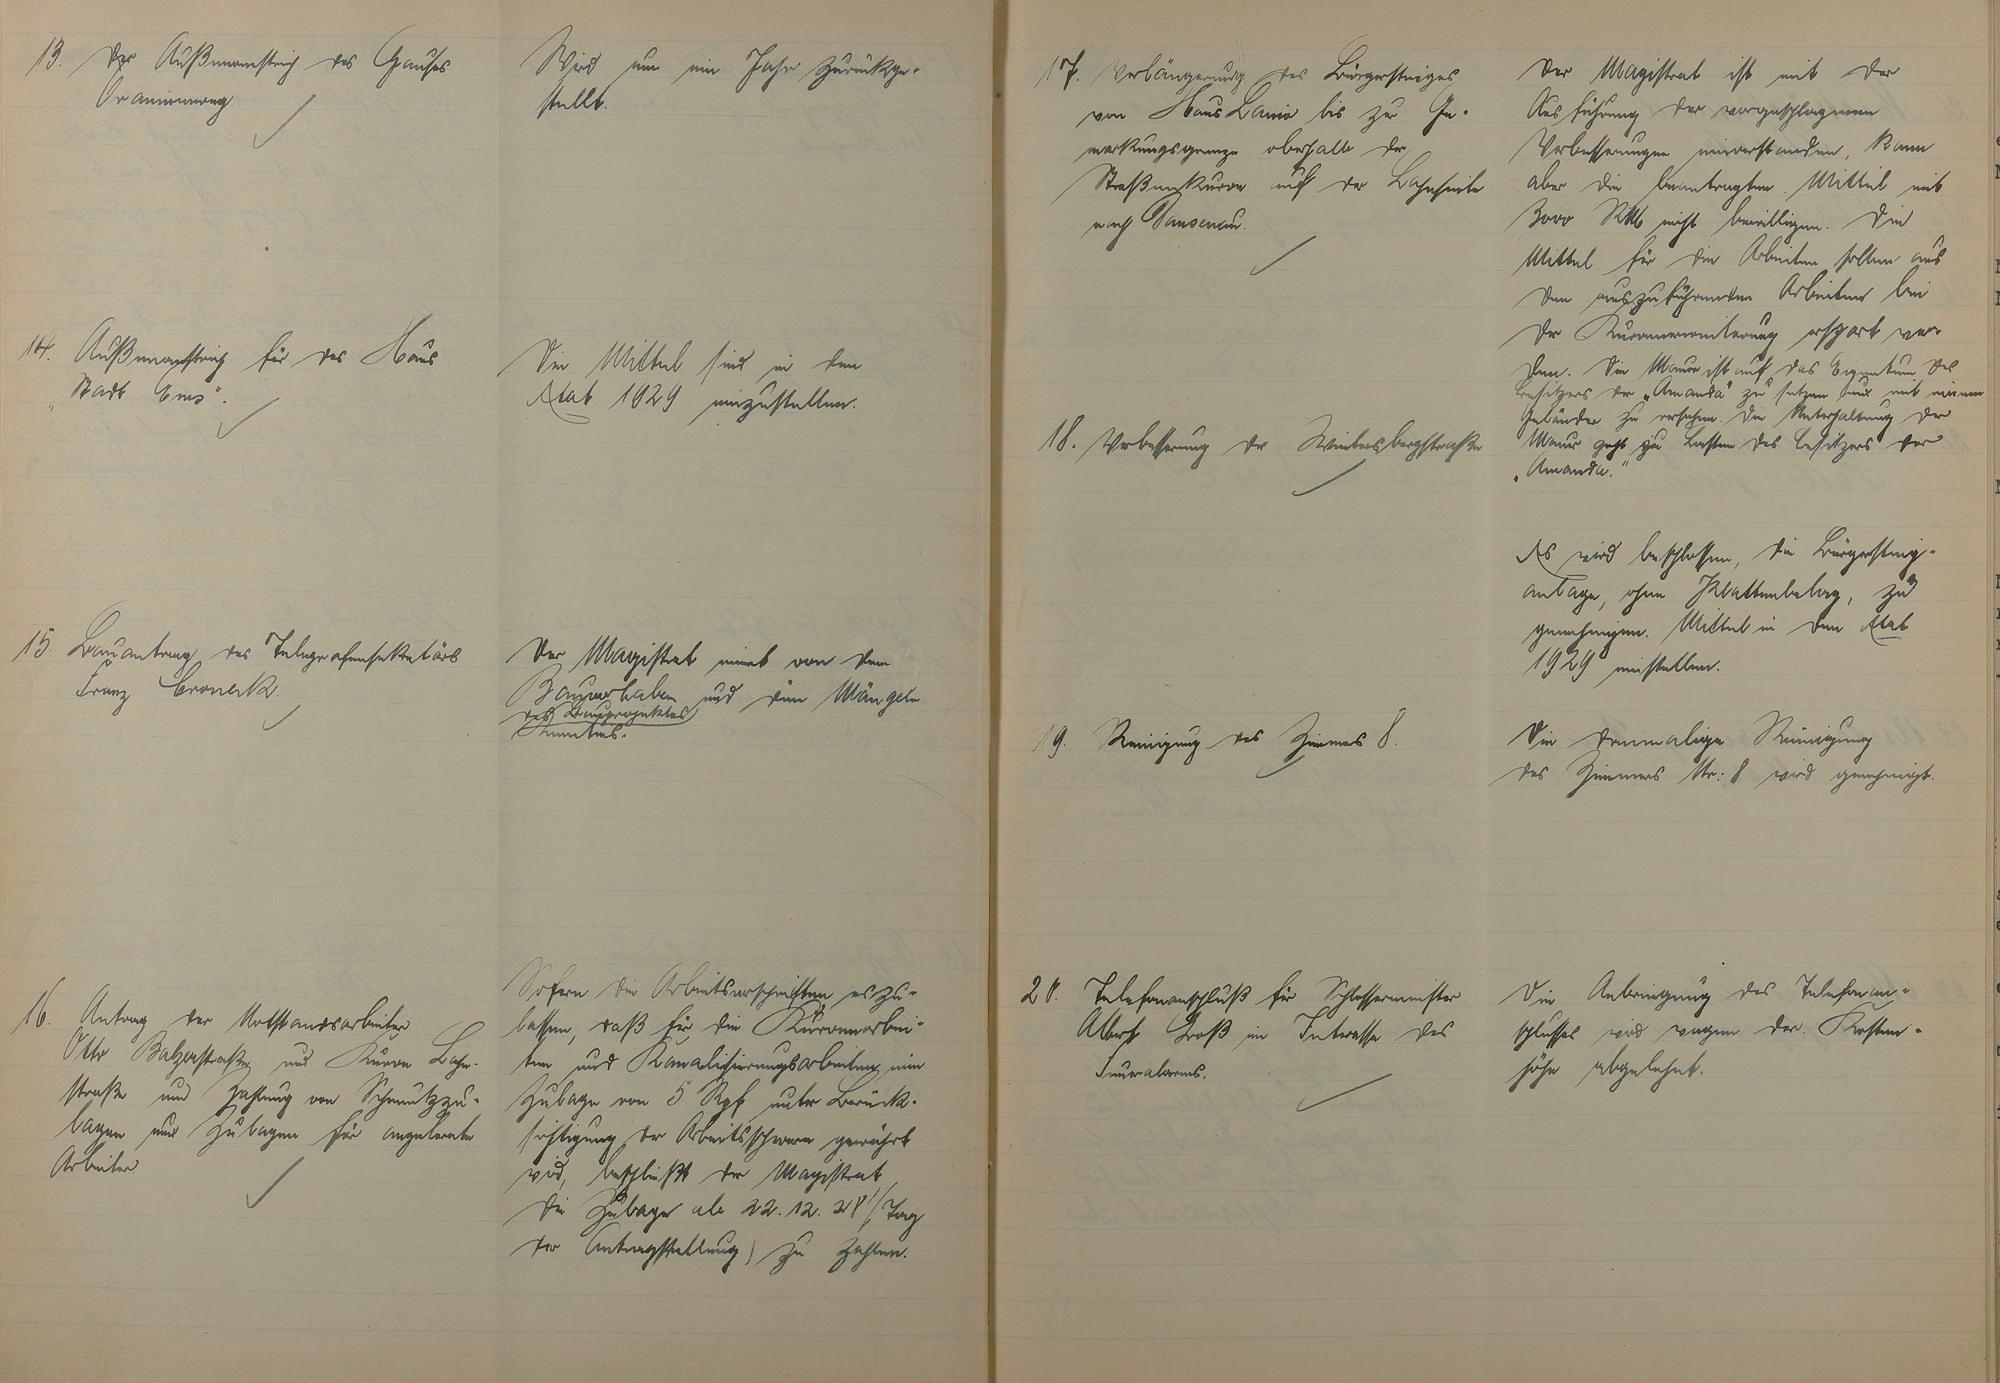 13. Der Außenanstrich des Hauses
Oranienweg
Wird um ein Jahr zurückge-
stellt.
14. Außenanstrich für das Haus
"Stadt Ems".
Die Mittel sind in den
Etat 1929 einzustellen.
15. Bauantrag des Telegrafensekretärs
Franz
Der Magistrat nimmt von dem
Bauvorhaben und den Mängeln
des Bauprojektes
Kenntnis.
16. Antrag der Notstandsarbeiter
Otto Balzerstraße und Kurve Lahn-
straße um Zahlung von Schmutzzu-
lagen und Zulagen für angelernte
Arbeiter
Sofern die Arbeitsvorschriften es zu-
lassen, daß für die Kurvenarbei-
ten und Kanalisierungsarbeiten eine
Zulage von 5 Rpf unter Berück-
sichtigung der Arbeitsschwere gewährt
wird, beschließt der Magistrat
die Zulage ab 22.12.28 (Tag
der Antragstellung) zu zahlen.
17. Verlängerung des Bürgersteiges
von Haus bis zur Ge-
markungsgrenze oberhalb der
Straßenkurve auf der Lahnseite
nach Dausenau.
Der Magistrat ist mit der
Ausführung der vorgeschlagenen
Verbesserungen einverstanden, kann
aber die beantragten Mittel mit
3000 RM nicht bewilligen. Die
Mittel für die Arbeiten sollen aus
den auszuführenden Arbeiten bei
der Kurvenerweiterung erspart wer-
den. Die Mauer ist auf das Eigentum des
Besitzers der "Amanda" zu setzen und mit einem
Geländer zu versehen. Die Unterhaltung der
Mauer geht zu Lasten des Besitzers der
"Amanda."
18. Verbesserung der Wintersbergstraße
Es wird beschlossen, die Bürgersteig-
anlage, ohne Plattenbelag, zu
genehmigen. Mittel in den Etat
1929 einstellen.
19. Reinigung des Zimmers 8.
Die dreimalige Reinigung
des Zimmers Nr: 8 wird genehmigt.
20. Telefonanschluß für Schlossermeister
Albert Groß im Interesse des
Feueralarms.
Die Anbringung des Telefonan-
schlusses wird wegen der Kosten-
höhe abgelehnt.